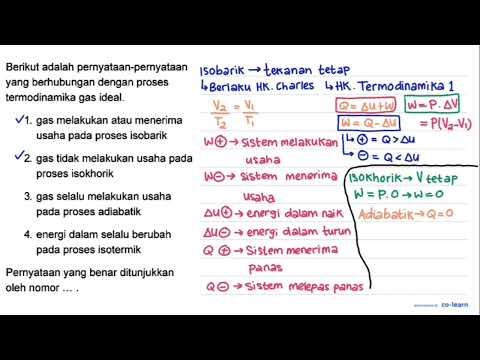 Berikut adalah pernyataan-pernyataan
yang berhubungan dengan proses
termodinamika gas ideal.
✓1. gas melakukan atau menerima
usaha pada proses isobarik
✓2. gas tidak melakukan usaha pada
proses isokhorik
3. gas selalu melakukan usaha
pada proses adiabatik
4. energi dalam selalu berubah
pada proses isotermik
Pernyataan yang benar ditunjukkan
oleh nomor ... .
Isobarik → tekanan tetap
↳ Berlaku HK. Charles ↳ HK. Termodinamika 1
V₂/T₂ = V₁/T₁
Q = ΔU + W
W = P. ΔV
W = Q - ΔU
= P(V₂-V₁)
↳ ⊕ = Q > ΔU
↳ ⊖ = Q < ΔU
W ⊕ → Sistem melakukan
usaha
W ⊖ → Sistem menerima
usaha
ΔU ⊕ → energi dalam naik
ΔU ⊖ → energi dalam turun
Q ⊕ → Sistem menerima
panas
Q ⊖ → Sistem melepas panas
Isokhorik → V tetap
W = P. 0 → W = 0
Adiabatik → Q = 0
co-learn